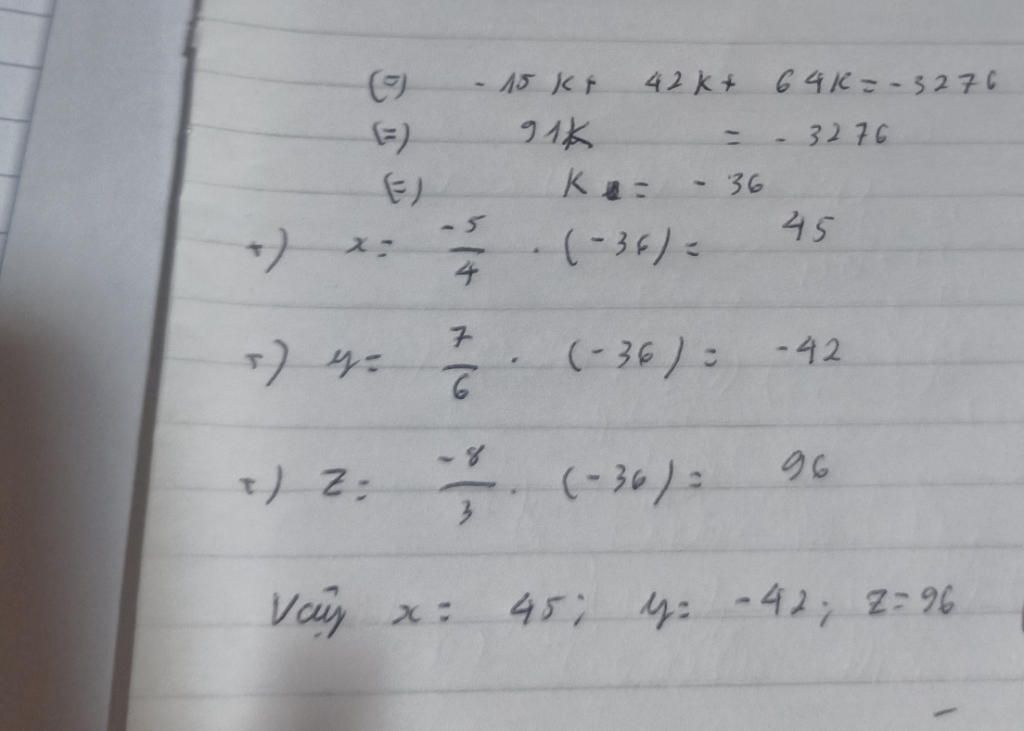 (=) -15K+ 42K+ 64K=-3276
(=) 91K = -3276
(=) K = -36
+) x= -5/4 . (-36)= 45
+) y= 7/6 . (-36)= -42
+) z= -8/3 . (-36)= 96
Vậy x= 45; y= -42; z=96